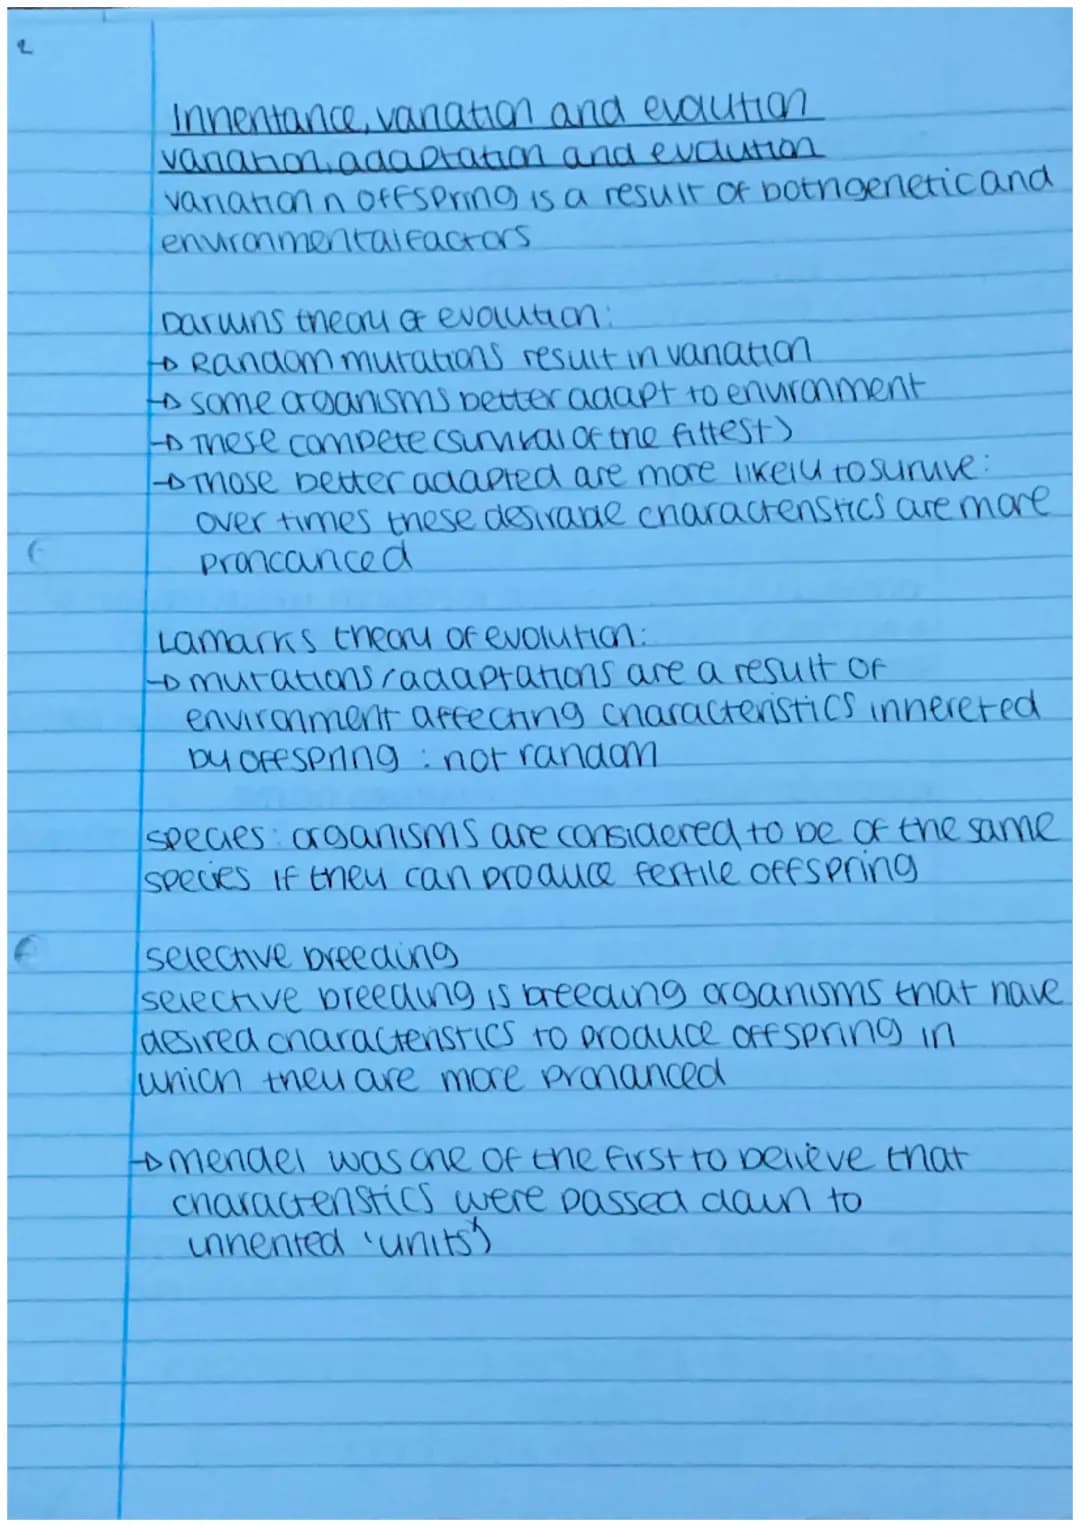 2
Inheritance, variation and evolution
variation, adaptation and evolution
variation n offspring is a result of both genetic and
environmental factors
Darwins theory of evolution:
→ Random mutations result in variation
→ some organisms better adapt to environment
→ These compete (survival of the fittest)
→ Those better adapted are more likely to suruve:
over times these desirable characteristics are more
proncounced
Lamarks theory of evolution:
→ mutations/adaptations are a result of
environment affecting characteristics inhereted
by offspring : not random
species: organisms are considered to be of the same
species if they can produce fertile offspring
selective breeding
selective breeding is breeding organisms that have
desired characteristics to produce offspring in
which they are more pronounced
→ mendel was one of the first to believe that
characteristics were passed down to
inherited 'units')